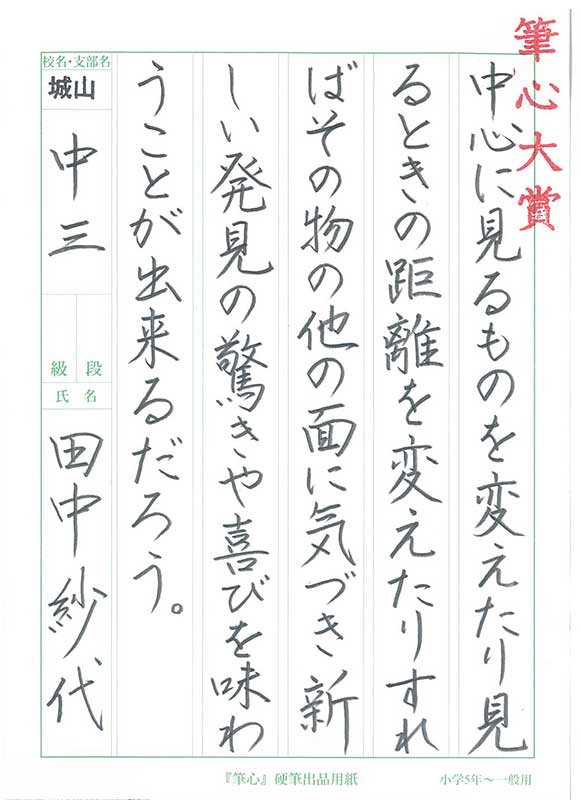 筆心大賞
中心に見るものを変えたり見
るときの距離を変えたりすれ
ばその物の他の面に気づき新
しい発見の驚きや喜びを味わ
うことが出来るだろう。
校名・支部名
城山
中三
段
級
氏名
田中紗代
『筆心』硬筆出品用紙
小学5年～一般用